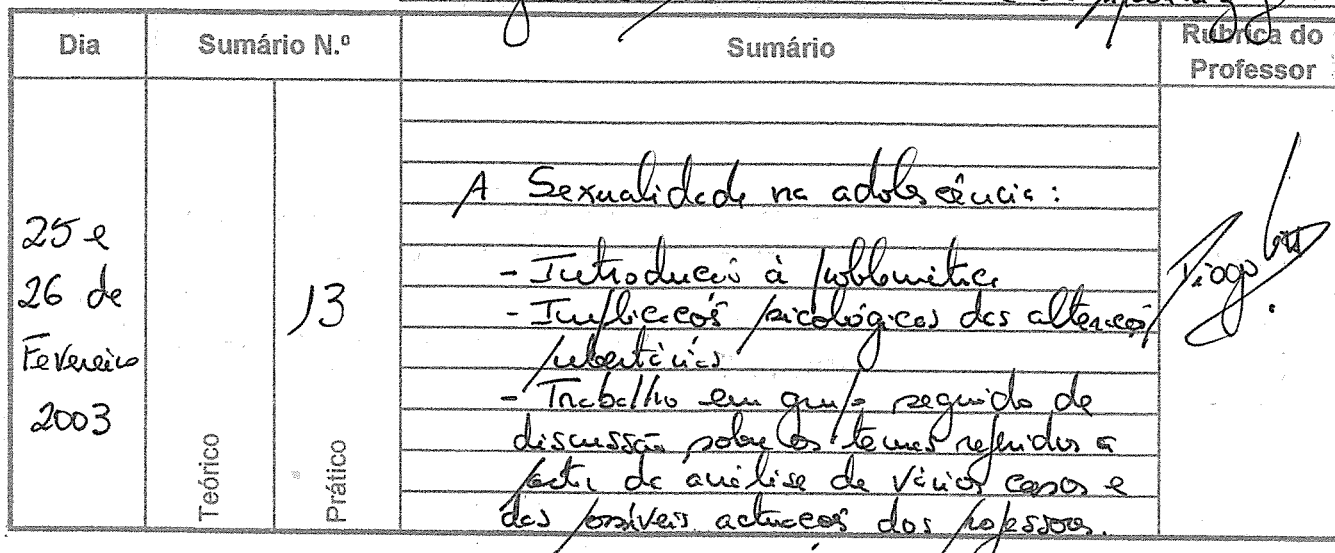 Dia Sumário N.º Sumário Rubrica do Professor
25 e
26 de
Fevereiro
2003
Teórico
13
Prático
A Sexualidade na adolescência:
- Introdução à problemática
- Implicações psicológicas das alterações
pubertárias
- Trabalho em grupo seguido de
discussão sobre os temas referidos a
partir da análise de vários casos e
das possíveis actuações dos professores.
Tiago